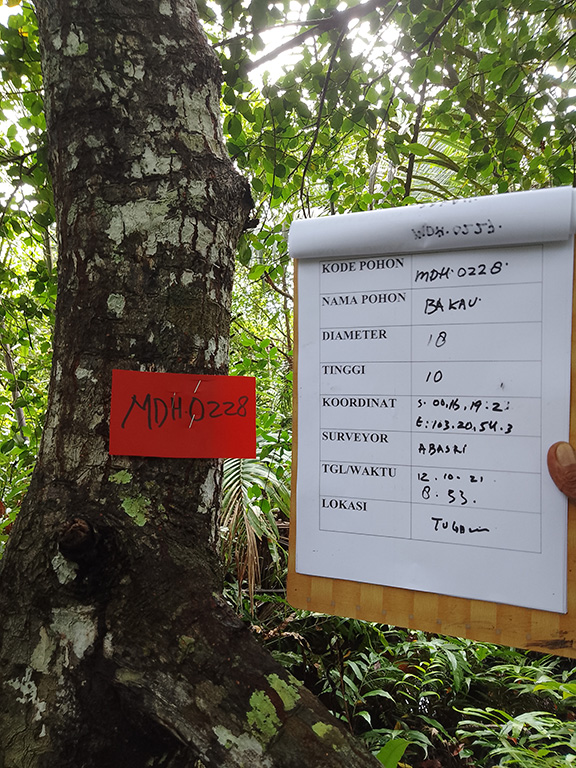 MDH.0228
KODE POHON MDH.0228
NAMA POHON BAKAU
DIAMETER 18
TINGGI 10
KOORDINAT
E:103.20.54.3
SURVEYOR ABASRI
TGL/WAKTU 12.10.21
8.53.
LOKASI